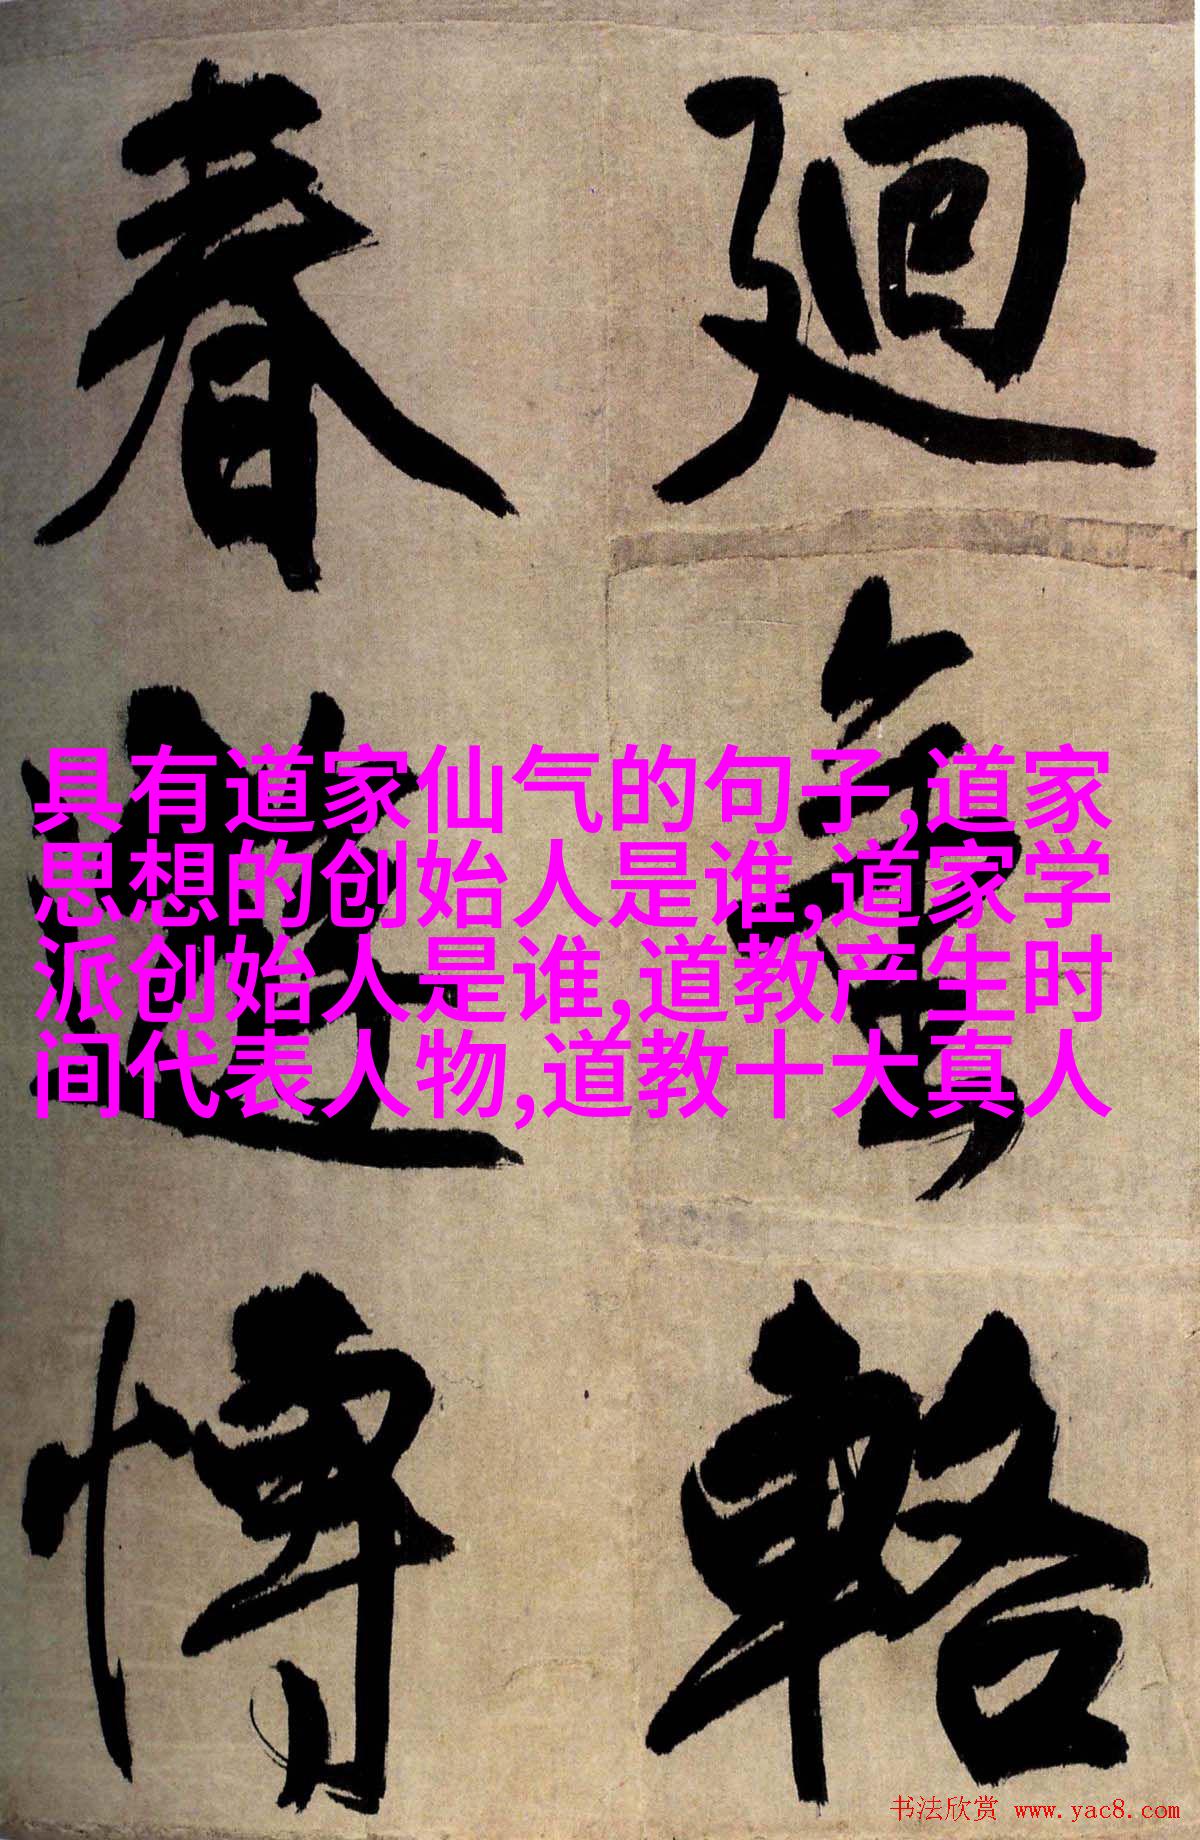 廻
輅
春
愽
具有道家仙气的句子,道家
思想的创始人是谁,道家学
派创始人是谁,道教产生时
间代表人物,道教十大真人
书法欣赏 www.yac8.com